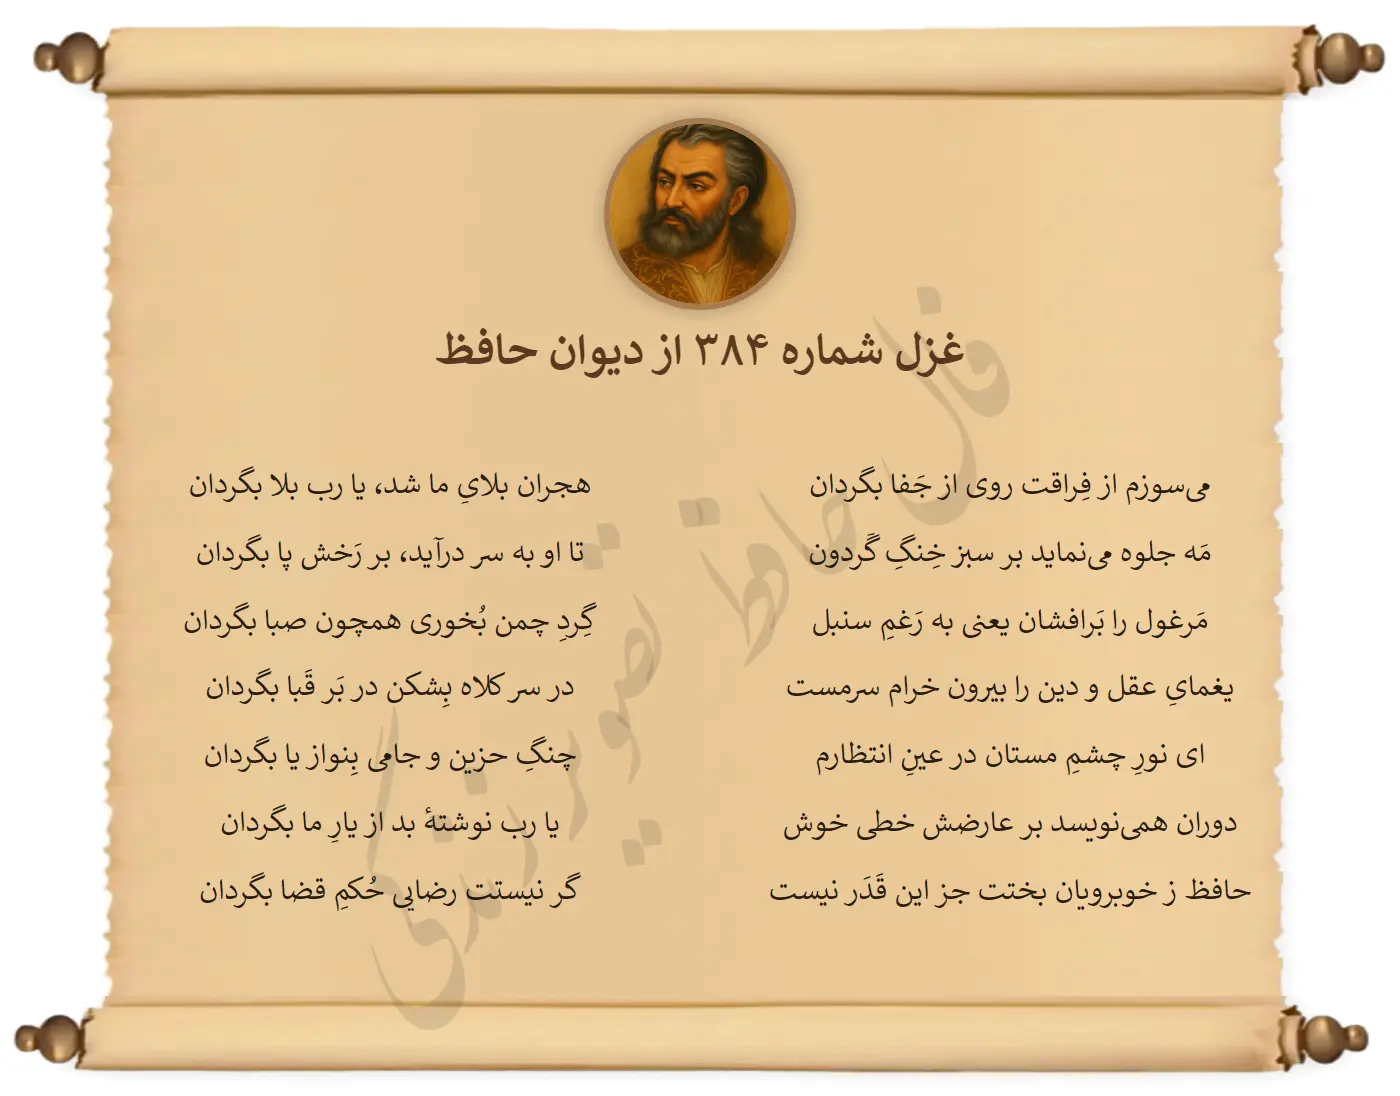 غزل شماره ۳۸۴ از دیوان حافظ
می‌سوزم از فِراقت روی از جَفا بگردان
هجران بلایِ ما شد، یا رب بلا بگردان
مَه جلوه می‌نماید بر سبز خِنگِ گَردون
تا او به سر درآید، بر رَخش پا بگردان
مَرغول را بَرافشان یعنی به رَغمِ سنبل
گِردِ چمن بُخوری همچون صبا بگردان
یغمایِ عقل و دین را بیرون خرام سرمست
در سر کلاه بِشکن در بَر قَبا بگردان
ای نورِ چشمِ مستان در عینِ انتظارم
چنگِ حزین و جامی بِنواز یا بگردان
دوران همی‌نویسد بر عارضش خطی خوش
یا رب نوشتهٔ بد از یارِ ما بگردان
حافظ ز خوبرویان بختت جز این قَدَر نیست
گر نیستت رضایی حُکمِ قضا بگردان
فال حافظ تصویر زندگی